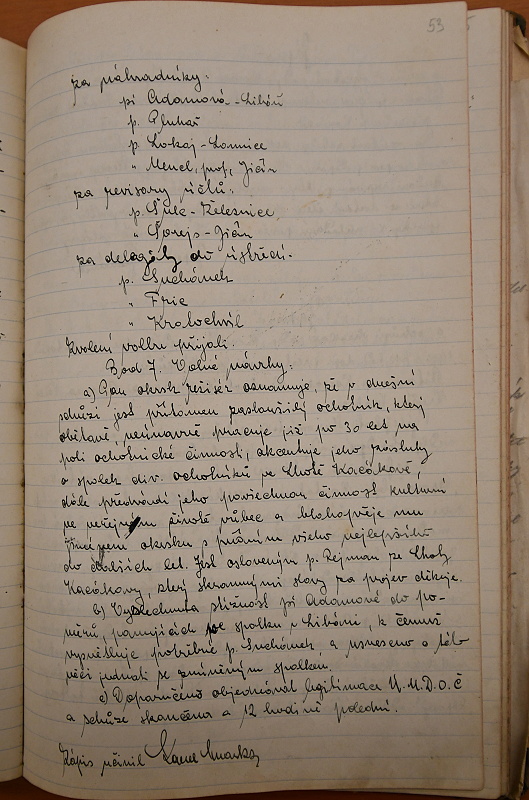 53
za náhradníky:
pí Adamová - Libáň
p. Pluhař
p. Lokaj - Lomnice
" Mencl, prof, Jičín
za revisory účtů:
p. Šulc - Železnice
" Šorejs - Jičín
za delegáty do ústředí:
p. Suchánek
" Fric
" Kratochvíl
Zvolení volbu přijali.
Bod 7. Volné návrhy:
a) Pan okrsk. režisér oznamuje, že v dnešní
schůzi jest přítomen zasloužilý ochotník, který
obětavě, neúnavně pracuje již po 30 let na
poli ochotnické činnosti, akcentuje jeho zásluhy
o spolek div. ochotníků ve Lhotě Kacákově
dále předvádí jeho povšechnou činnost kulturní
ve veřejném životě vůbec a blahopřeje mu
jménem okrsku s přáním všeho nejlepšího
do dalších let. Jest osloveným p. Rejman ze Lhoty
Kacákovy, který skromnými slovy za projev děkuje.
b) Vyslechnuta stížnost pí Adamové do po-
měrů, panujících ve spolku v Libáni, k čemuž
vysvětluje potřebné p. Suchánek, a usneseno o této
věci jednati se zmíněným spolkem.
c) Doporučeno objednávat legitimace Ú.M.D.O.Č
a schůze skončena o 12 hodině polední.
Zápis učinil Karel